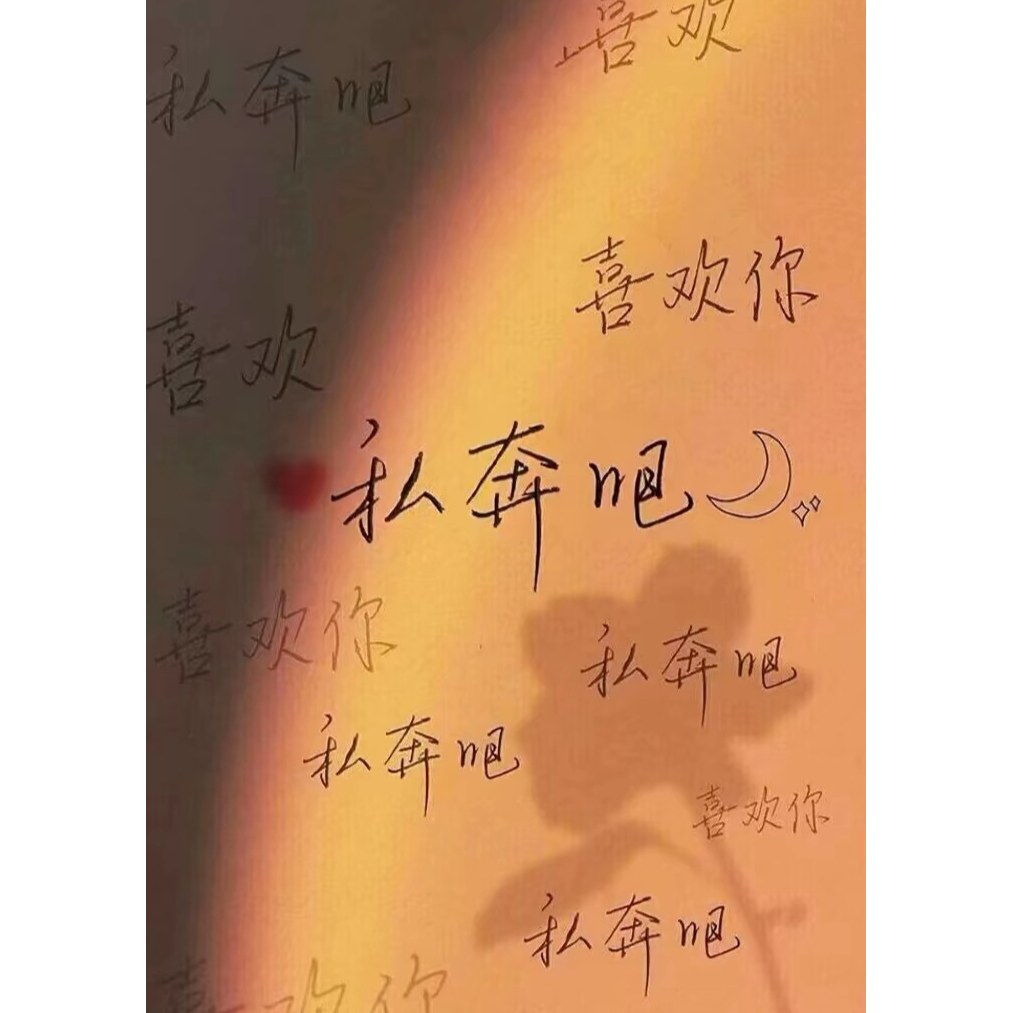 喜欢
私奔吧
喜欢你
喜欢
私奔吧
喜欢你
私奔吧
私奔吧
喜欢你
私奔吧
喜欢你